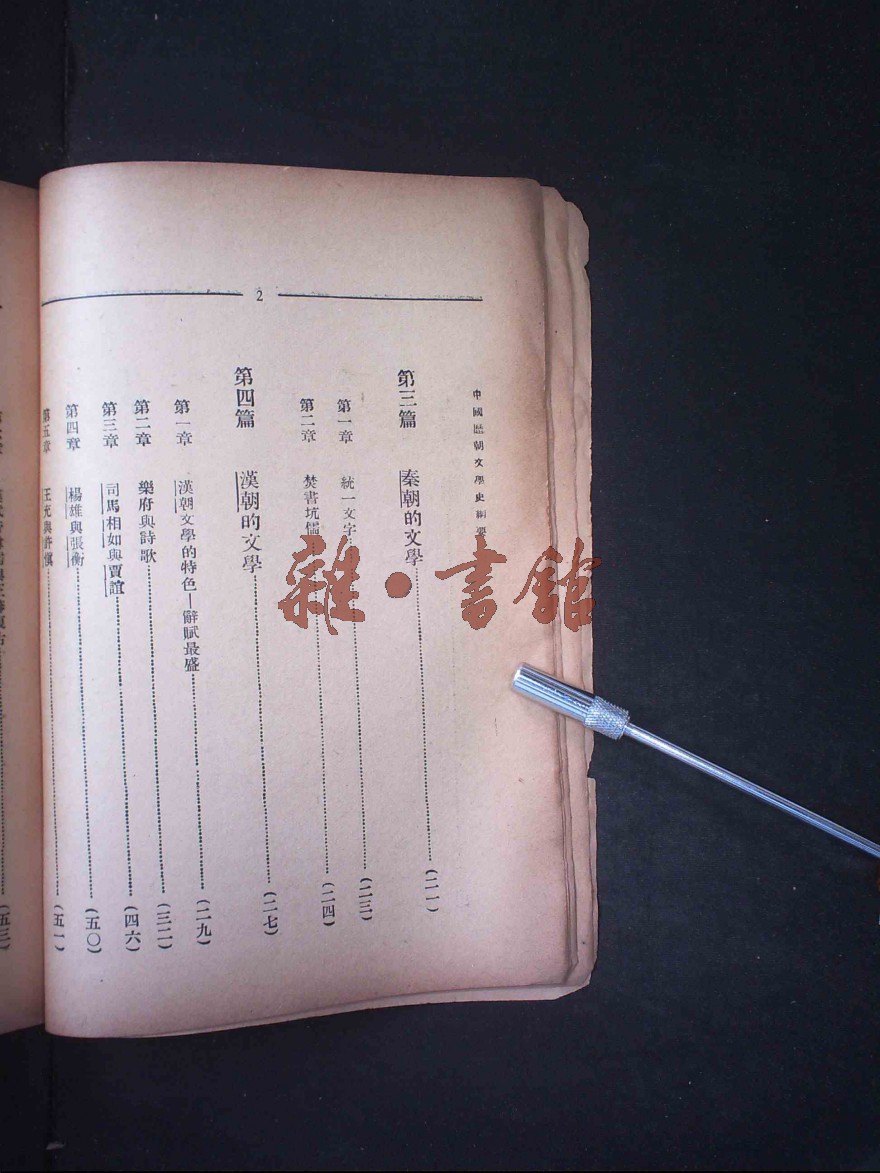 2
中國歷朝文學史綱要
第三篇 秦朝的文學……(二一)
第一章 統一文字……(二三)
第二章 焚書坑儒……(二四)
第四篇 漢朝的文學……(二七)
第一章 漢朝文學的特色—辭賦最盛……(二九)
第二章 樂府與詩歌……(三二)
第三章 司馬相如與賈誼……(四六)
第四章 楊雄與張衡……(五〇)
第五章 王充與許慎……(五一)
(五三)
雜·書館